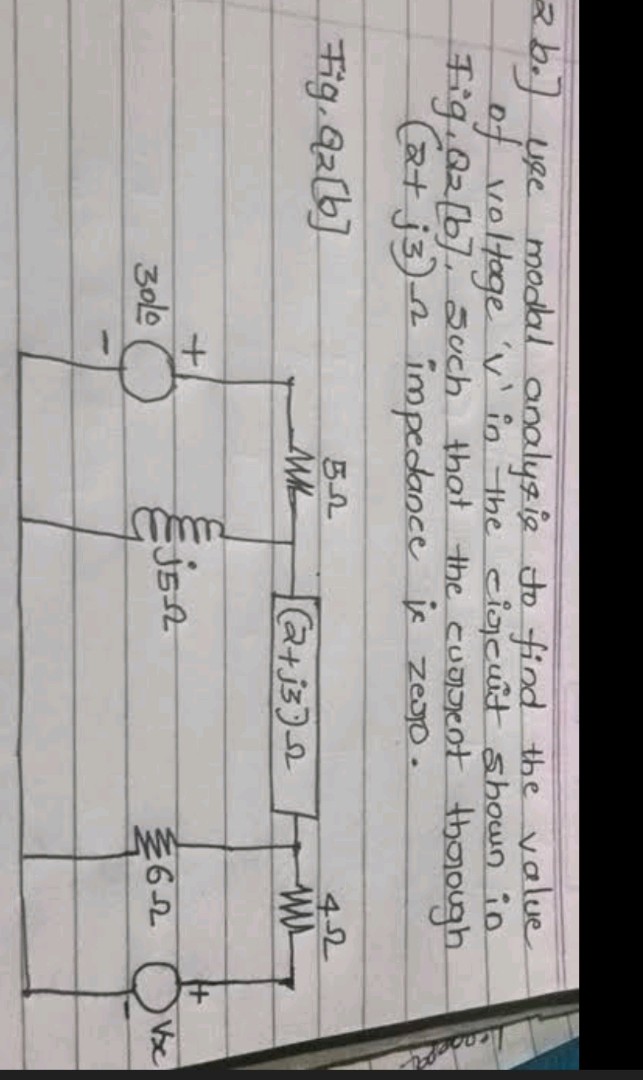 2b.] Use modal analysis to find the value
of voltage 'v' in the circuit shown in
Fig.Q2[b], such that the current thorough
(2+j3)Ω impedance is zero.
Fig.Q2[b]
5Ω
(2+j3)Ω
4Ω
+
+
30∟0
j5Ω
6Ω
Vx
-
-